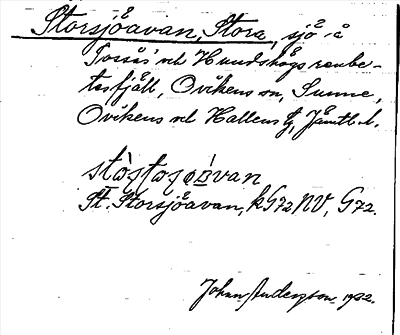 Storsjöavan, Stora, sjö å
Tossås' ul Hundshögs renbe-
tesfjäll, Ovikens sn, Sunne,
Ovikens ul Hallens tg, Jämtl. l.
St. Storsjöavan, kG72 NV, G72.
Johan Anderzson 1932.